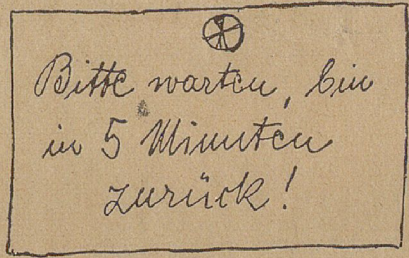 Bitte warten, bin
in 5 Minuten
zurück!